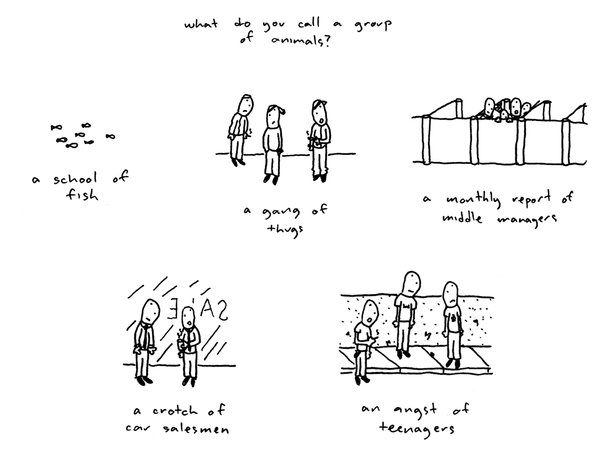 what do you call a group
of animals?
a school of
fish
a gang of
thugs
a monthly report of
middle managers
SALE
a crotch of
car salesmen
an angst of
teenagers